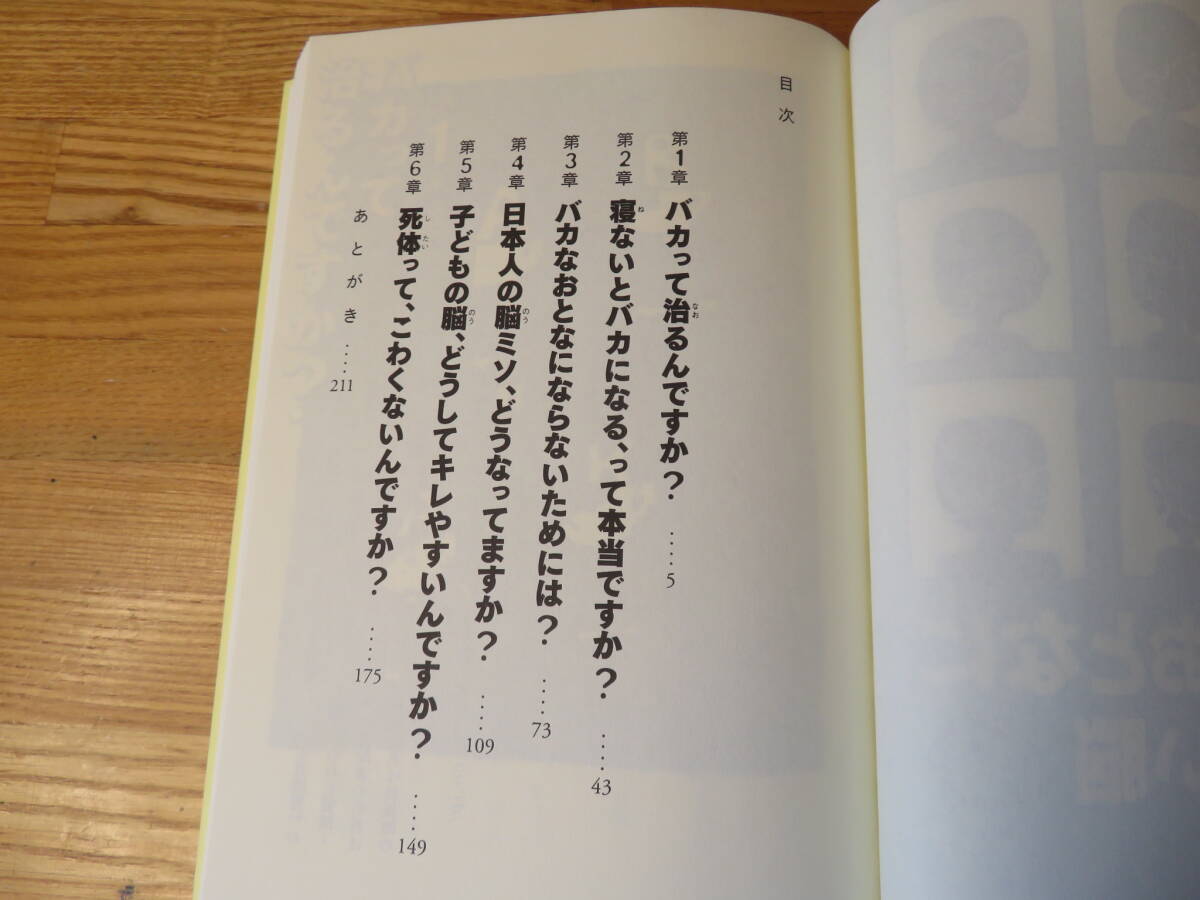 目次
第1章 バカって治るんですか? ····5
第2章 寝ないとバカになる、って本当ですか? ····43
第3章 バカなおとなにならないためには? ····73
第4章 日本人の脳ミソ、どうなってますか? ····109
第5章 子どもの脳、どうしてキレやすいんですか? ····149
第6章 死体って、こわくないんですか? ····175
あとがき ····211